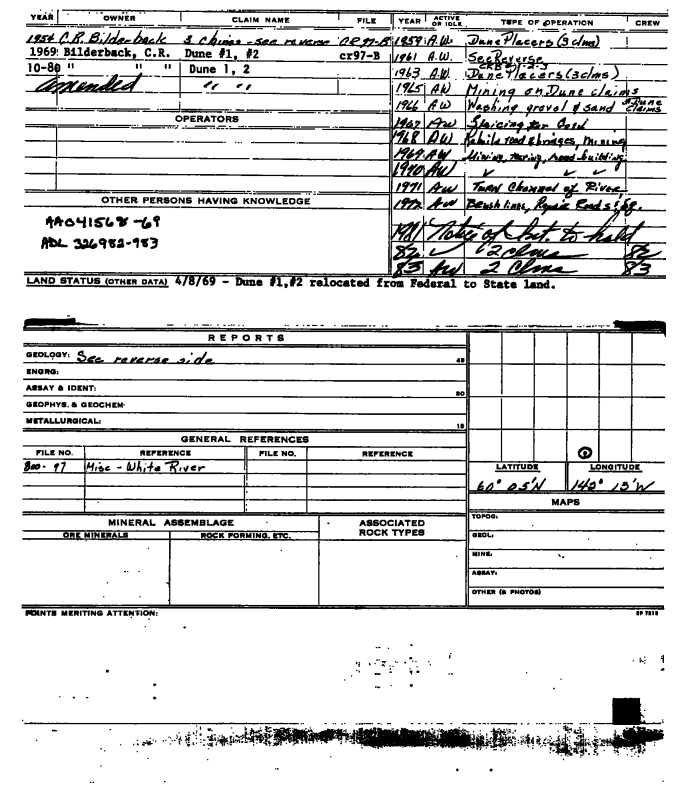 YEAR OWNER CLAIM NAME FILE YEAR ACTIVE OR IDLE TYPE OF OPERATION CREW
1954 C.R. Bilderback 3 claims - see reverse CR 97-B 1959 A.W. Dune Placers (3 clms)
1969 Bilderback, C.R. Dune #1, #2 cr97-B 1961 A.W. See Reverse
10-80 " " " Dune 1, 2 1963 A.W. Dune Placers (3 clms)
amended " " 1965 AW Mining on Dune claims
1966 AW Washing gravel & sand Dune claims
OPERATORS 1967 AW Sluicing for Gold
1968 AW Rebuild road & bridges, Mining
1969 AW Mining, road building
1970 AW
1971 AW Turn Channel of River
OTHER PERSONS HAVING KNOWLEDGE 1972 AW Brush lines, Repair Roads
AA041568-69 1981 Notice of Int. to hold
ADL 326982-983 82 2 clms 82
83 AW 2 Clms 83
LAND STATUS (OTHER DATA) 4/8/69 - Dune #1,#2 relocated from Federal to State land.
REPORTS
GEOLOGY: See reverse side 45
ENGRG:
ASSAY & IDENT: 30
GEOPHYS. & GEOCHEM
METALLURGICAL: 15
GENERAL REFERENCES
FILE NO. REFERENCE FILE NO. REFERENCE
800-97 Misc - White River
LATITUDE LONGITUDE
60° 05'N 142° 13'W
MAPS
MINERAL ASSEMBLAGE ASSOCIATED ROCK TYPES
ORE MINERALS ROCK FORMING, ETC.
TOPOG:
GEOL:
MINE:
ASSAY:
OTHER (& PHOTOS)
POINTS MERITING ATTENTION: